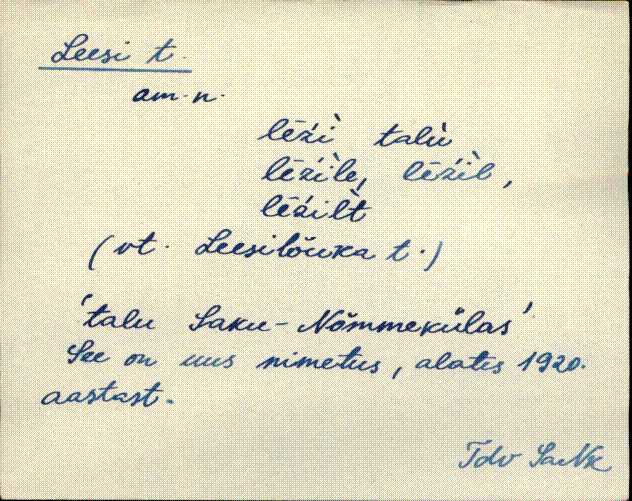 Leesi t.
am. n.
lēźì talù
lēźìle, lēźìl,
lēźìlt
(vt. Leesilõuka t.)
'talu Saku-Nõmmekülas'
See on uus nimetus, alates 1920.
aastast.
Tdv SaNk